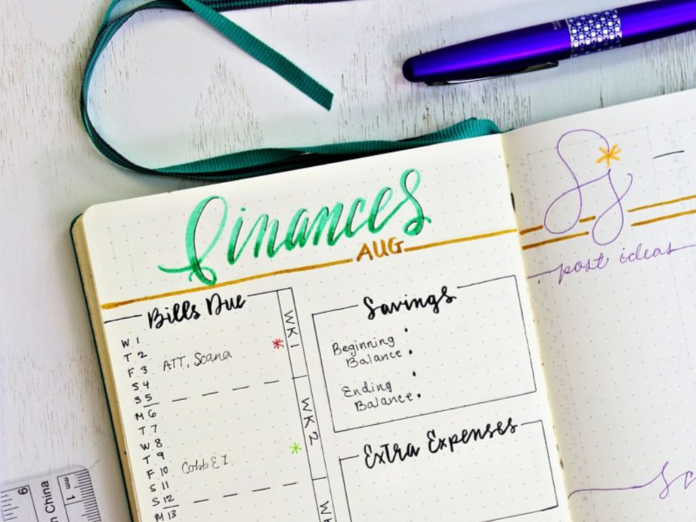 Finances
AUG
Bills Due
W 1
T 2
F 3 ATT, Scana
S 4
S 5
M 6
T 7
W 8
T 9
F 10 Cobb EI
S 11
S 12
M 13
WK 1
WK 2
Savings
Beginning
Balance:
Ending
Balance:
Extra Expenses
post ideas
6
n China
mm 1